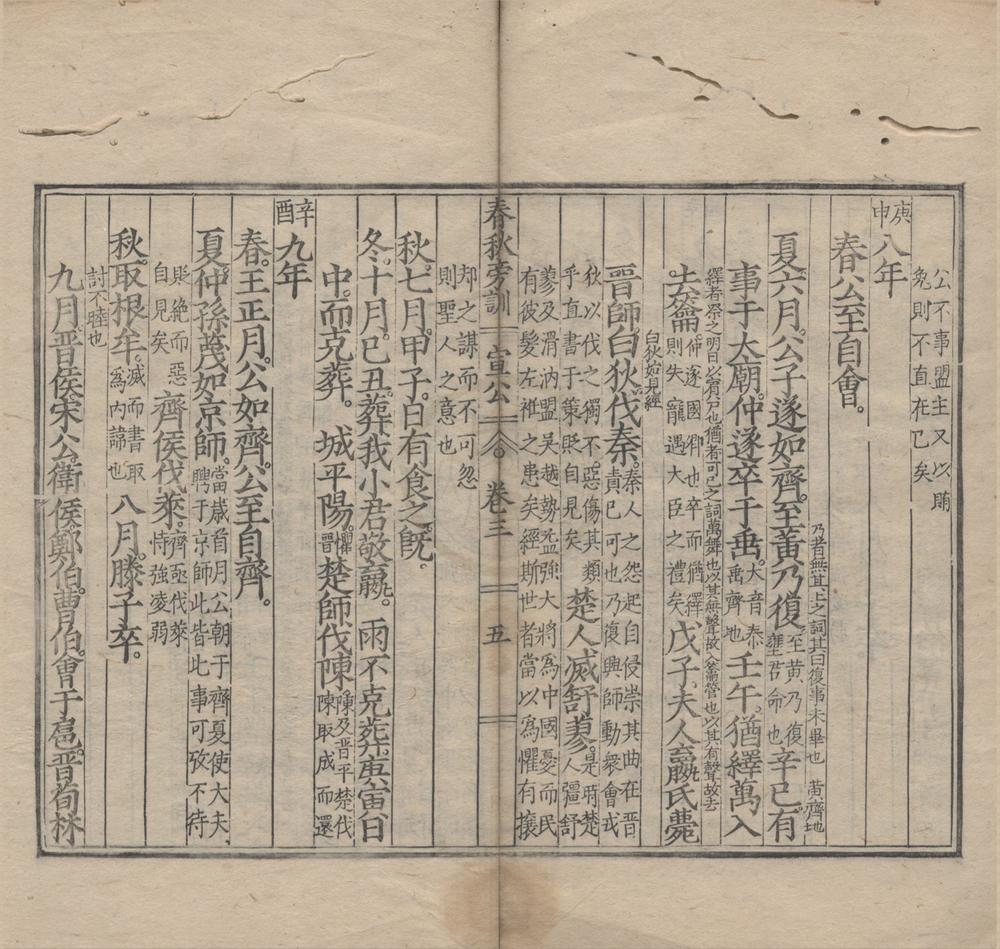 公不事盟主又以賂
免則不直在己矣
庚申
八年
春公至自會。
乃者無其上之詞其曰復事未畢也 黃齊地
夏六月。公子遂如齊。至黃乃復至黃乃復壅君命也辛巳。有
事于大廟。仲遂卒于垂。大音泰垂齊地壬午。猶繹萬入
繹者祭之明日以賓尸也猶者可已之詞萬舞也以其無聲故入籥管也以其有聲故去
去籥仲遂國卿也卒而猶繹則失寵遇大臣之禮矣戊子。夫人嬴氏薨
白狄始見經
晉師白狄伐秦。秦人之怨起自侵崇其曲在晉責己可也乃復興師動衆會戎
狄以伐之獨不惡傷其類乎直書于策貶自見矣楚人滅舒蓼。是時楚人彊舒
蓼及滑汭盟吳越勢益強大將為中國憂而民有被髮左衽之患矣經斯世者當以為懼有攘
春秋旁訓 宣公 卷三 五
却之謀而不可忽
則聖人之意也
秋七月。甲子。日有食之。旣。
冬。十月。己丑。葬我小君敬嬴。雨不克葬。庚寅。日
中。而克葬。城平陽。楚師伐陳陳及晉平楚伐陳取成而還
辛酉
九年
春。王正月。公如齊。公至自齊。
夏。仲孫蔑如京師。當歲首月公朝于齊夏使大夫聘于京師此皆此事可攷不待
貶絕而惡自見矣齊侯伐萊。齊亟伐萊恃強凌弱
秋。取根牟。滅而書取為內諱也八月。滕子卒。
討不睦也
九月。晉侯宋公。衛侯鄭伯。曹伯。會于扈。晉荀林